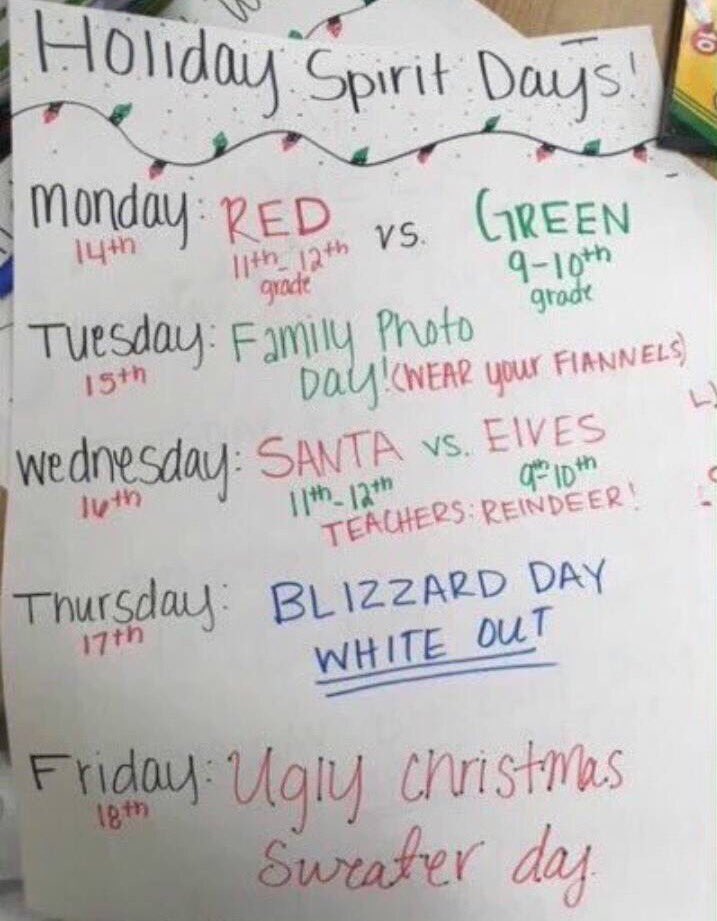 Holiday Spirit Days!
Monday: RED vs. GREEN
14th 11th-12th grade 9-10th grade
Tuesday: Family Photo
15th Day! (WEAR your FlANNELS)
Wednesday: SANTA vs. ElVES
16th 11th-12th 9th-10th
TEACHERS: REINDEER!
Thursday: BLIZZARD DAY
17th WHITE OUT
Friday: Ugly Christmas
18th Sweater day